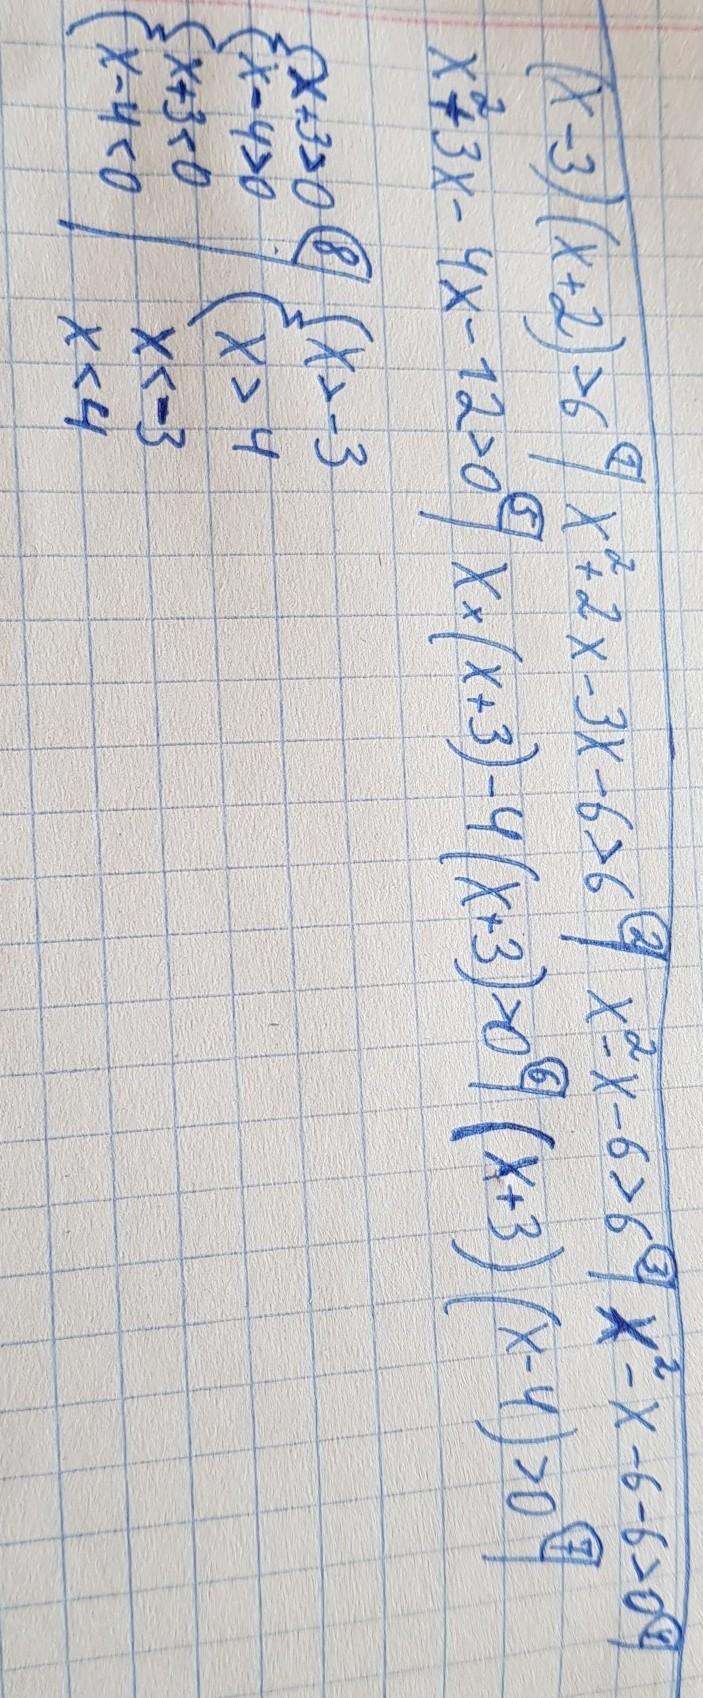 (x-3)(x+2)>6 | ① x²+2x-3x-6>6 | ② x²-x-6>6 | ③ x²-x-6-6>0 | ④
x²+3x-4x-12>0 | ⑤ x×(x+3)-4(x+3)>0 | ⑥ (x+3)(x-4)>0 | ⑦
{x+3>0 | ⑧ {x>-3
{x-4>0 {x>4
{x+3<0 x<-3
{x-4<0 | x<4